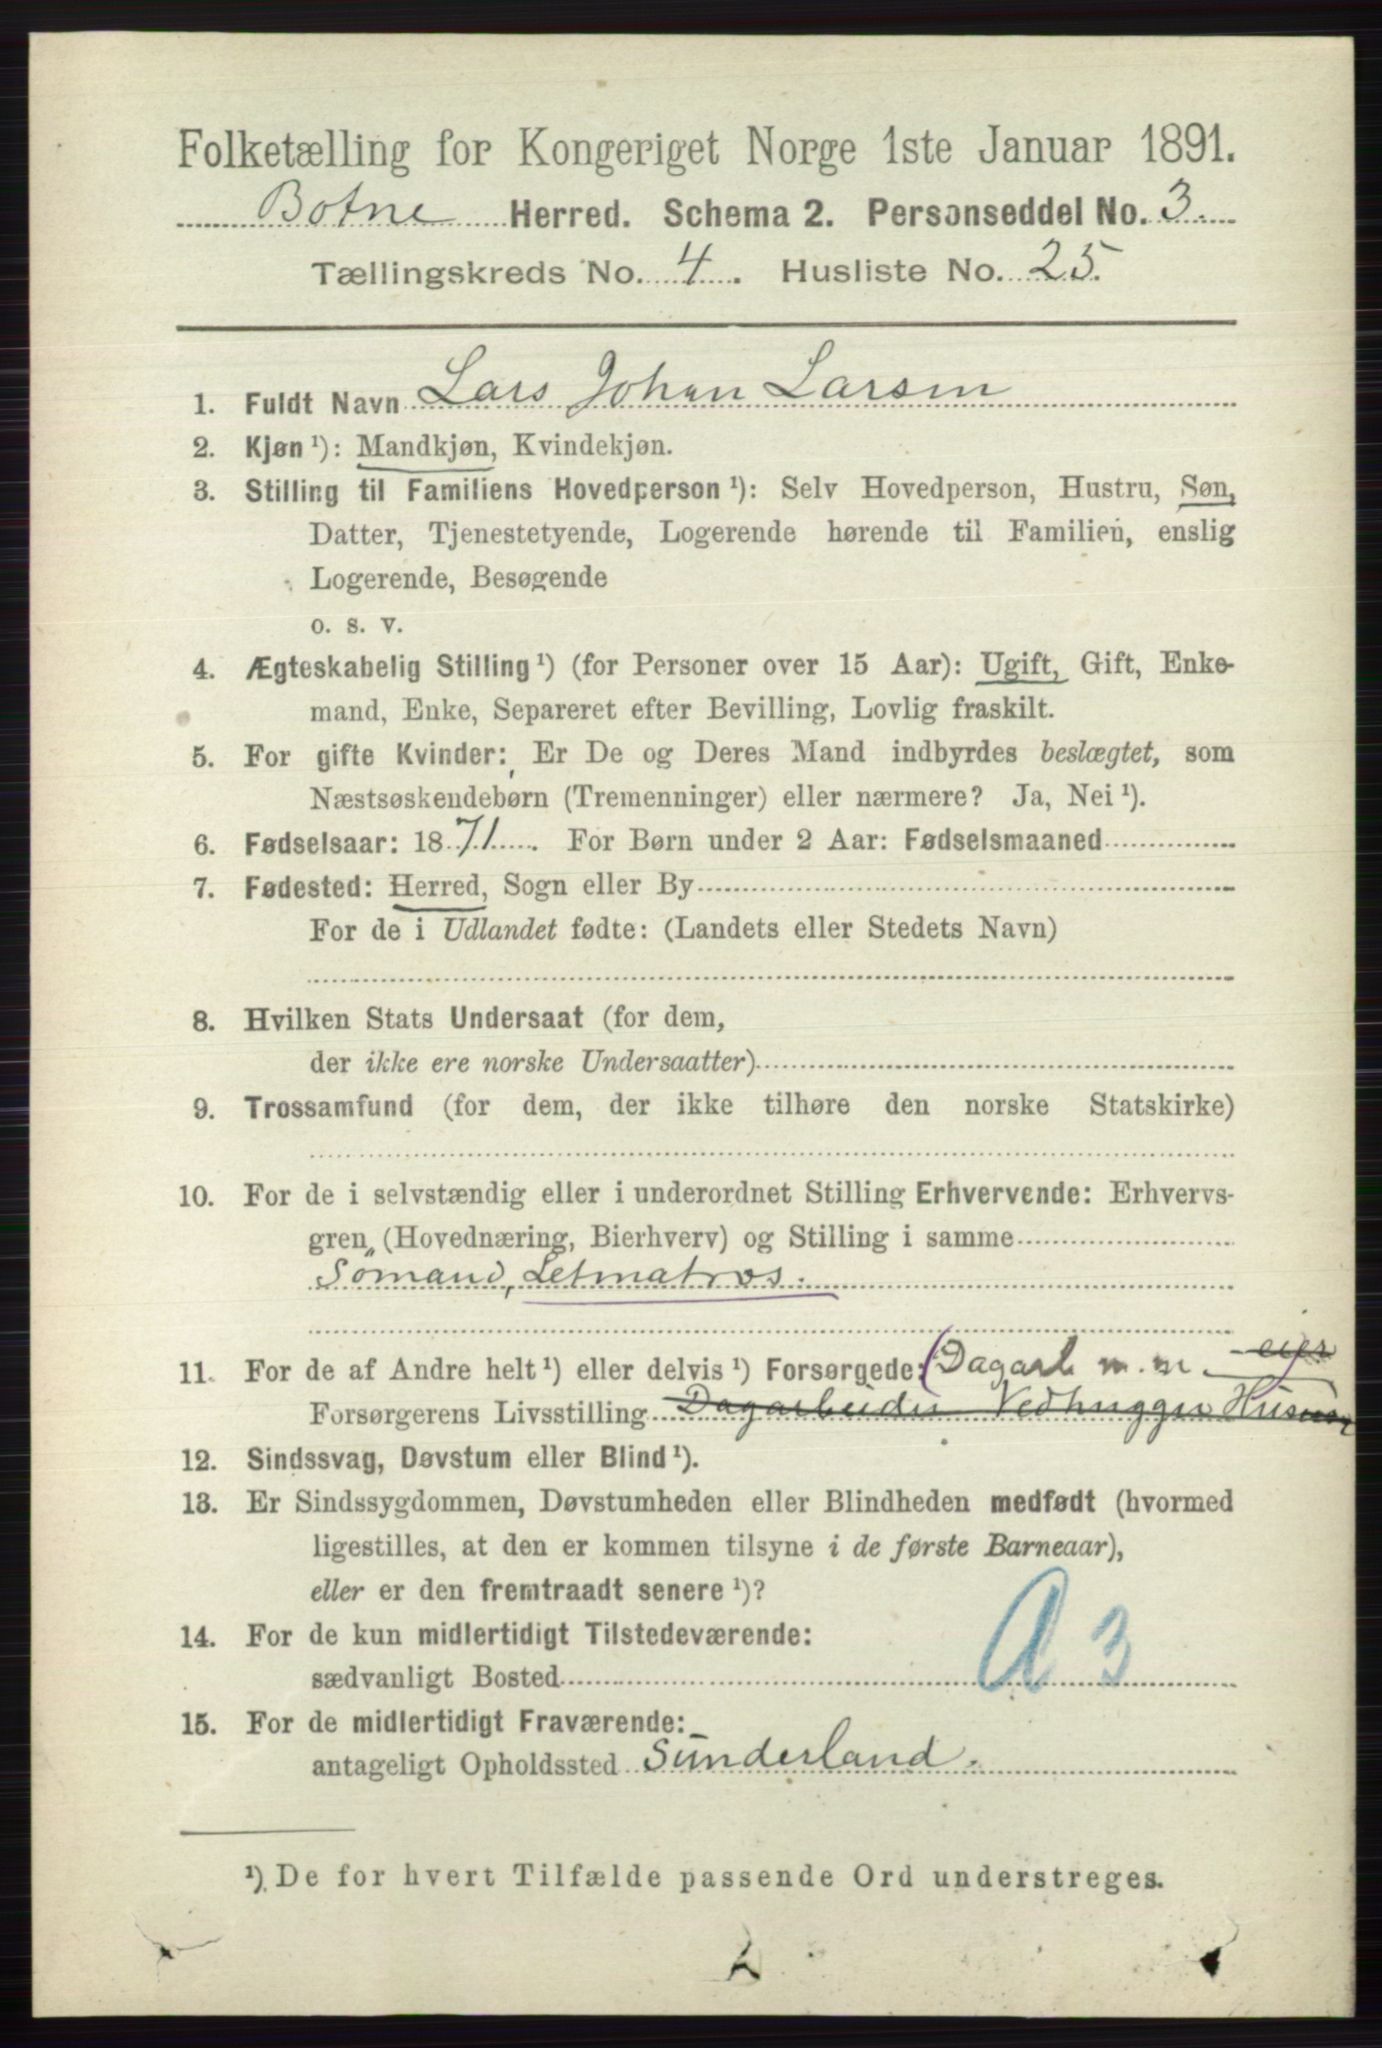 Folketælling for Kongeriget Norge 1ste Januar 1891.
Botne Herred. Schema 2. Personseddel No. 3.
Tællingskreds No. 4. Husliste No. 25.
1. Fuldt Navn Lars Johan Larsen
2. Kjøn ¹): Mandkjøn, Kvindekjøn.
3. Stilling til Familiens Hovedperson ¹): Selv Hovedperson, Hustru, Søn,
Datter, Tjenestetyende, Logerende hørende til Familien, enslig
Logerende, Besøgende
o. s. v.
4. Ægteskabelig Stilling ¹) (for Personer over 15 Aar): Ugift, Gift, Enke-
mand, Enke, Separeret efter Bevilling, Lovlig fraskilt.
5. For gifte Kvinder: Er De og Deres Mand indbyrdes beslægtet, som
Næstsøskendebørn (Tremenninger) eller nærmere? Ja, Nei ¹).
6. Fødselsaar: 1871. For Børn under 2 Aar: Fødselsmaaned
7. Fødested: Herred, Sogn eller By
For de i Udlandet fødte: (Landets eller Stedets Navn)
8. Hvilken Stats Undersaat (for dem,
der ikke ere norske Undersaatter)
9. Trossamfund (for dem, der ikke tilhøre den norske Statskirke)
10. For de i selvstændig eller i underordnet Stilling Erhvervende: Erhvervs-
gren (Hovednæring, Bierhverv) og Stilling i samme
Sömand, Letmatros.
11. For de af Andre helt ¹) eller delvis ¹) Forsørgede: (Dagarb m.m. eier
Forsørgerens Livsstilling Dagarbeider Vedhugger Huus
12. Sindssvag, Døvstum eller Blind ¹).
13. Er Sindssygdommen, Døvstumheden eller Blindheden medfødt (hvormed
ligestilles, at den er kommen tilsyne i de første Barneaar),
eller er den fremtraadt senere ¹)?
14. For de kun midlertidigt Tilstedeværende:
sædvanligt Bosted
A 3
15. For de midlertidigt Fraværende:
antageligt Opholdssted Sunderland.
¹) De for hvert Tilfælde passende Ord understreges.